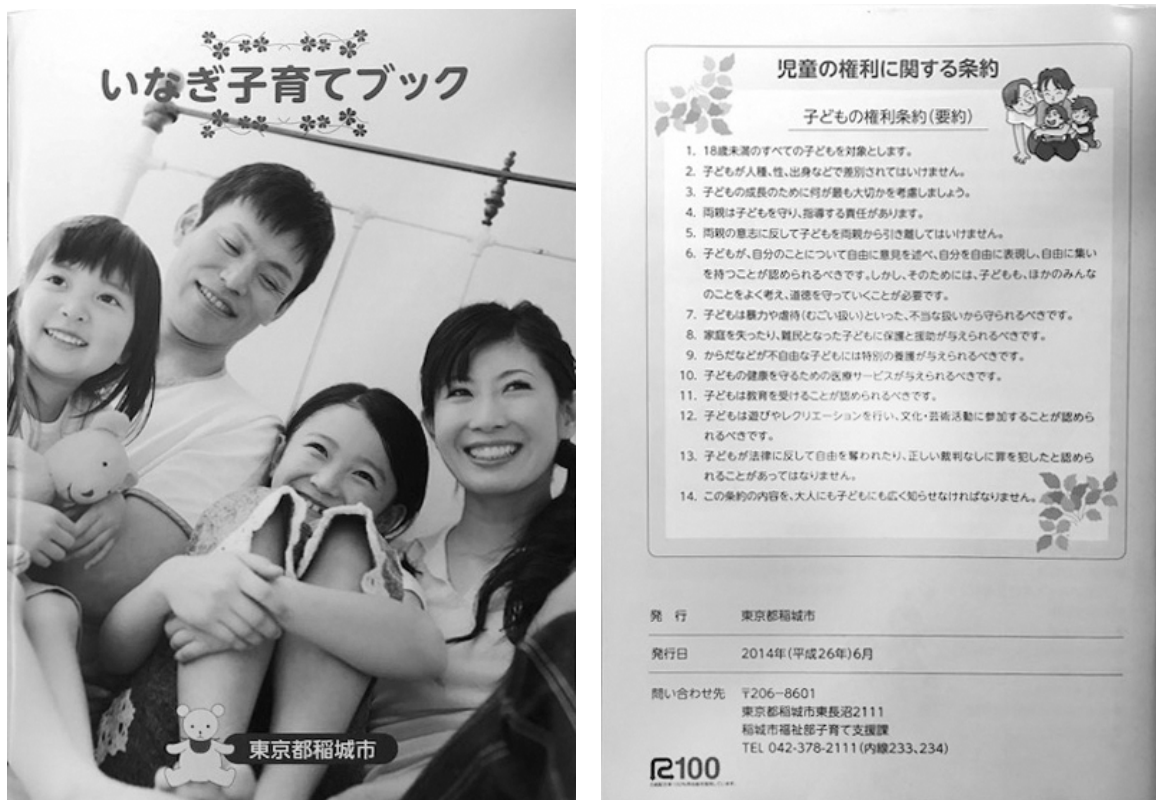 いなぎ子育てブック
東京都稲城市
児童の権利に関する条約
子どもの権利条約(要約)
1. 18歳未満のすべての子どもを対象とします。
2. 子どもが人種、性、出身などで差別されてはいけません。
3. 子どもの成長のために何が最も大切かを考慮しましょう。
4. 両親は子どもを守り、指導する責任があります。
5. 両親の意志に反して子どもを両親から引き離してはいけません。
6. 子どもが、自分のことについて自由に意見を述べ、自分を自由に表現し、自由に集い
を持つことが認められるべきです。しかし、そのためには、子どもも、ほかのみんな
のことをよく考え、道徳を守っていくことが必要です。
7. 子どもは暴力や虐待(むごい扱い)といった、不当な扱いから守られるべきです。
8. 家庭を失ったり、難民となった子どもに保護と援助が与えられるべきです。
9. からだなどが不自由な子どもには特別の養護が与えられるべきです。
10. 子どもの健康を守るための医療サービスが与えられるべきです。
11. 子どもは教育を受けることが認められるべきです。
12. 子どもは遊びやレクリエーションを行い、文化・芸術活動に参加することが認めら
れるべきです。
13. 子どもが法律に反して自由を奪われたり、正しい裁判なしに罪を犯したと認めら
れることがあってはなりません。
14. この条約の内容を、大人にも子どもにも広く知らせなければなりません。
発 行 東京都稲城市
発行日 2014年(平成26年)6月
問い合わせ先 〒206-8601
東京都稲城市東長沼2111
稲城市福祉部子育て支援課
TEL 042-378-2111(内線233、234)
R100